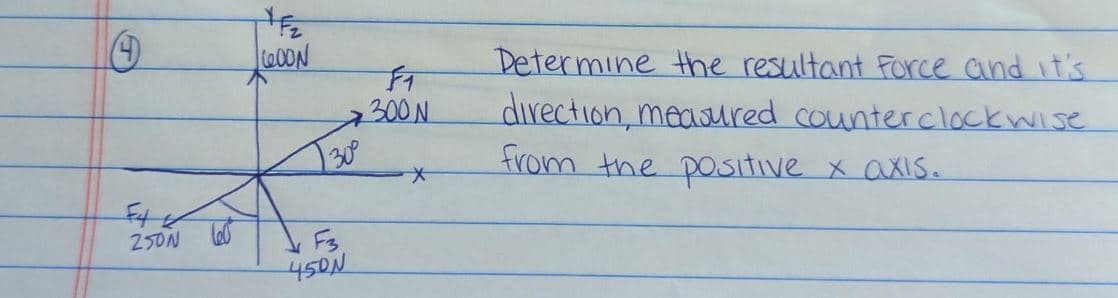 4
Y
F2
600N
F1
300N
30°
x
F4
250N
60°
F3
450N
Determine the resultant force and it's
direction, measured counterclockwise
from the positive x axis.